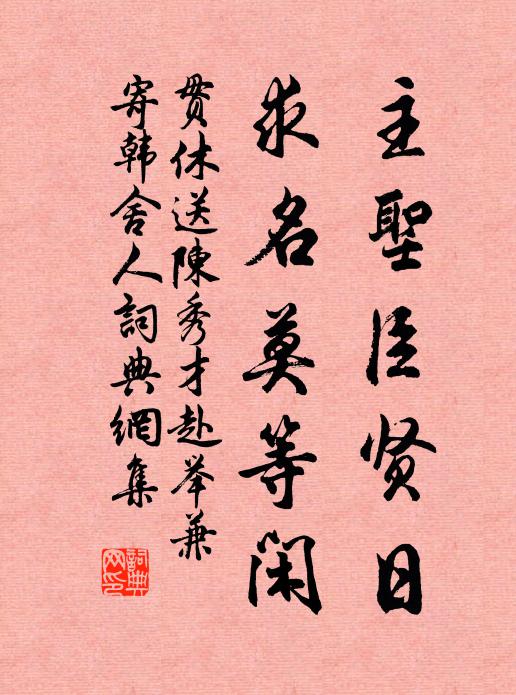 主聖臣贤日
求名莫等閑
贯休送陳秀才赴举兼
寄韩舍人詞典網集
詞典
网印